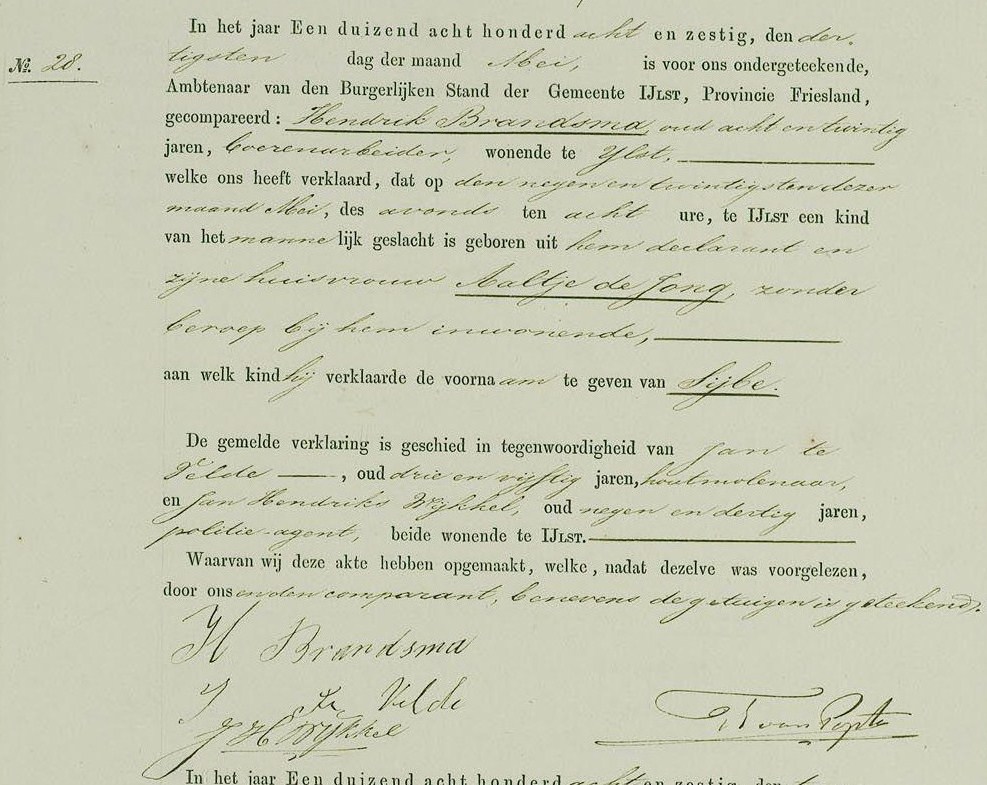 In het jaar Een duizend acht honderd acht en zestig, den der-
No. 28.
tigsten dag der maand Mei, is voor ons ondergeteekende,
Ambtenaar van den Burgerlijken Stand der Gemeente IJLST, Provincie Friesland,
gecompareerd: Hendrik Brandsma, oud acht en twintig
jaren, boerenarbeider, wonende te Ylst.
welke ons heeft verklaard, dat op den negen en twintigsten dezer
maand Mei, des avonds ten acht ure, te IJLST een kind
van het mannelijk geslacht is geboren uit hem declarant en
zijne huisvrouw Aaltje de Jong, zonder
beroep bij hem inwonende,
aan welk kind hij verklaarde de voornaam te geven van Sijbe.
De gemelde verklaring is geschied in tegenwoordigheid van Jan te
Velde, oud drie en vijftig jaren, houtmolenaar,
en Jan Hendriks Wijkkel, oud negen en dertig jaren,
politie-agent, beide wonende te IJLST.
Waarvan wij deze akte hebben opgemaakt, welke, nadat dezelve was voorgelezen,
door ons en den comparant, benevens de getuigen is geteekend.
H Brandsma
J te Velde
J H Wijkkel
van Popta
In het jaar Een duizend acht honderd acht en zestig, den